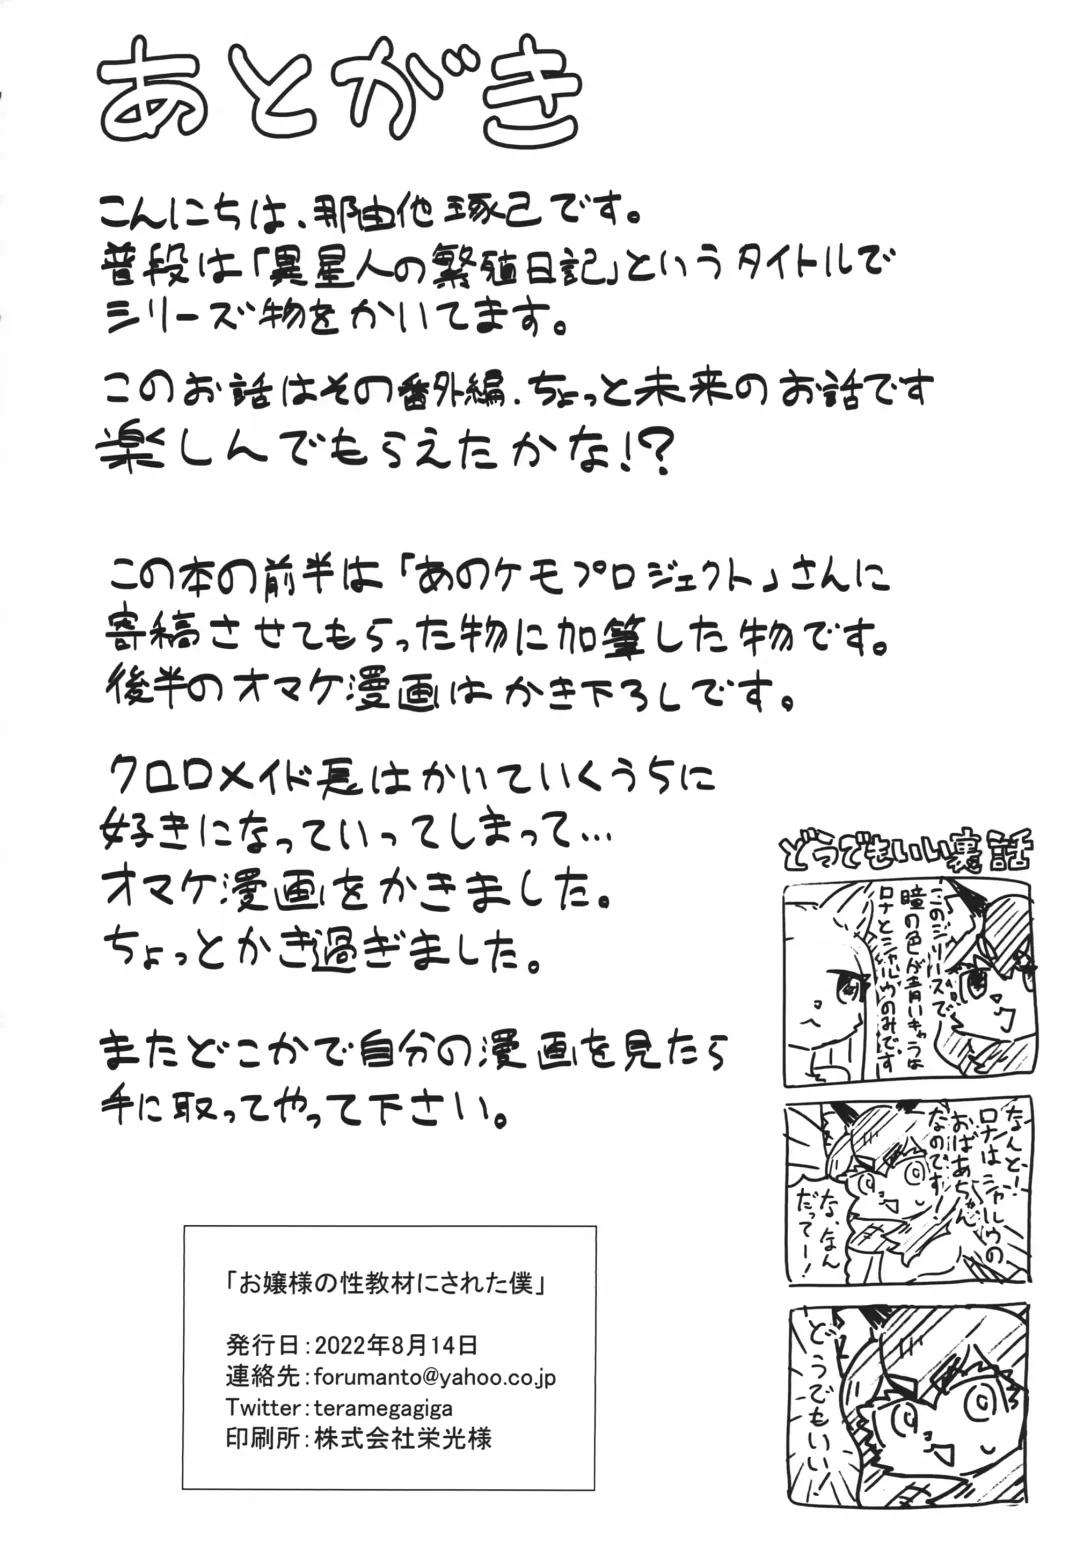 あとがき
こんにちは、那由他琢己です。
普段は「異星人の繁殖日記」というタイトルで
シリーズ物をかいてます。
このお話はその番外編、ちょっと未来のお話です
楽しんでもらえたかな!?
この本の前半は「あのケモプロジェクト」さんに
寄稿させてもらった物に加筆した物です。
後半のオマケ漫画はかき下ろしです。
クロロメイド長はかいていくうちに
好きになっていってしまって…
オマケ漫画をかきました。
ちょっとかき過ぎました。
またどこかで自分の漫画を見たら
手に取ってやって下さい。
どうでもいい裏話
このシリーズで
瞳の色が青いキャラは
ロナとシャルウのみです
なんとー
ロナはシャルウの
おばあちゃん
なのです!
な、なん
だってー!
どうでもいい!
「お嬢様の性教材にされた僕」
発行日：2022年8月14日
連絡先：forumanto@yahoo.co.jp
Twitter：teramegagiga
印刷所：株式会社栄光様